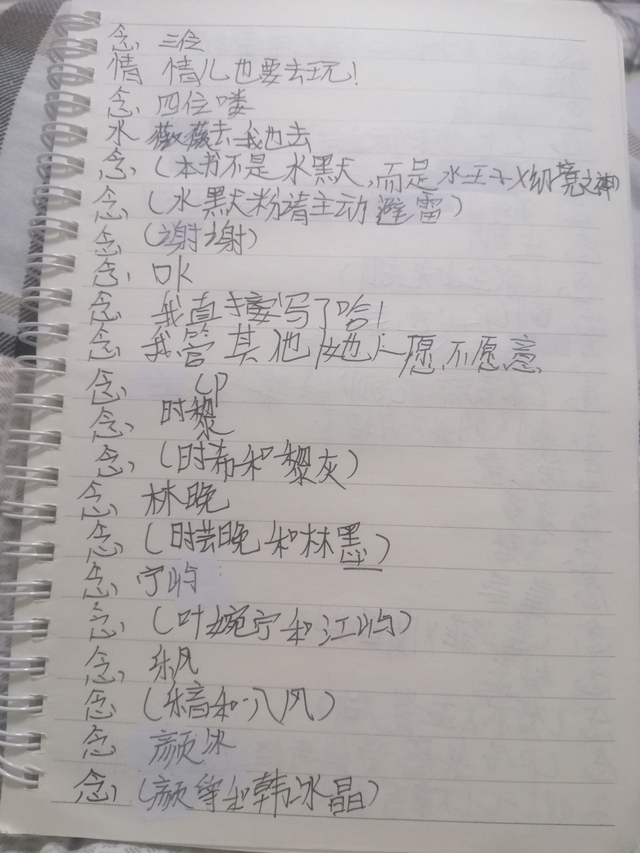 念 三位
情 情儿也要去玩!
念 四位喽
水 薇薇去我也去
念 (本书不是水默,而是水王子X幻境之神)
念 (水默粉请主动避雷)
念 (谢谢)
念 OK
念 我直接写了哈!
念 我管其他她人愿不愿意
念 CP
念 时黎
念 (时希和黎灰)
念 林晚
念 (时芸晚和林墨)
念 宁屿
念 (叶婉宁和江屿)
念 乐风
念 (乐音和八风)
念 颜冰
念 (颜爵和韩冰晶)